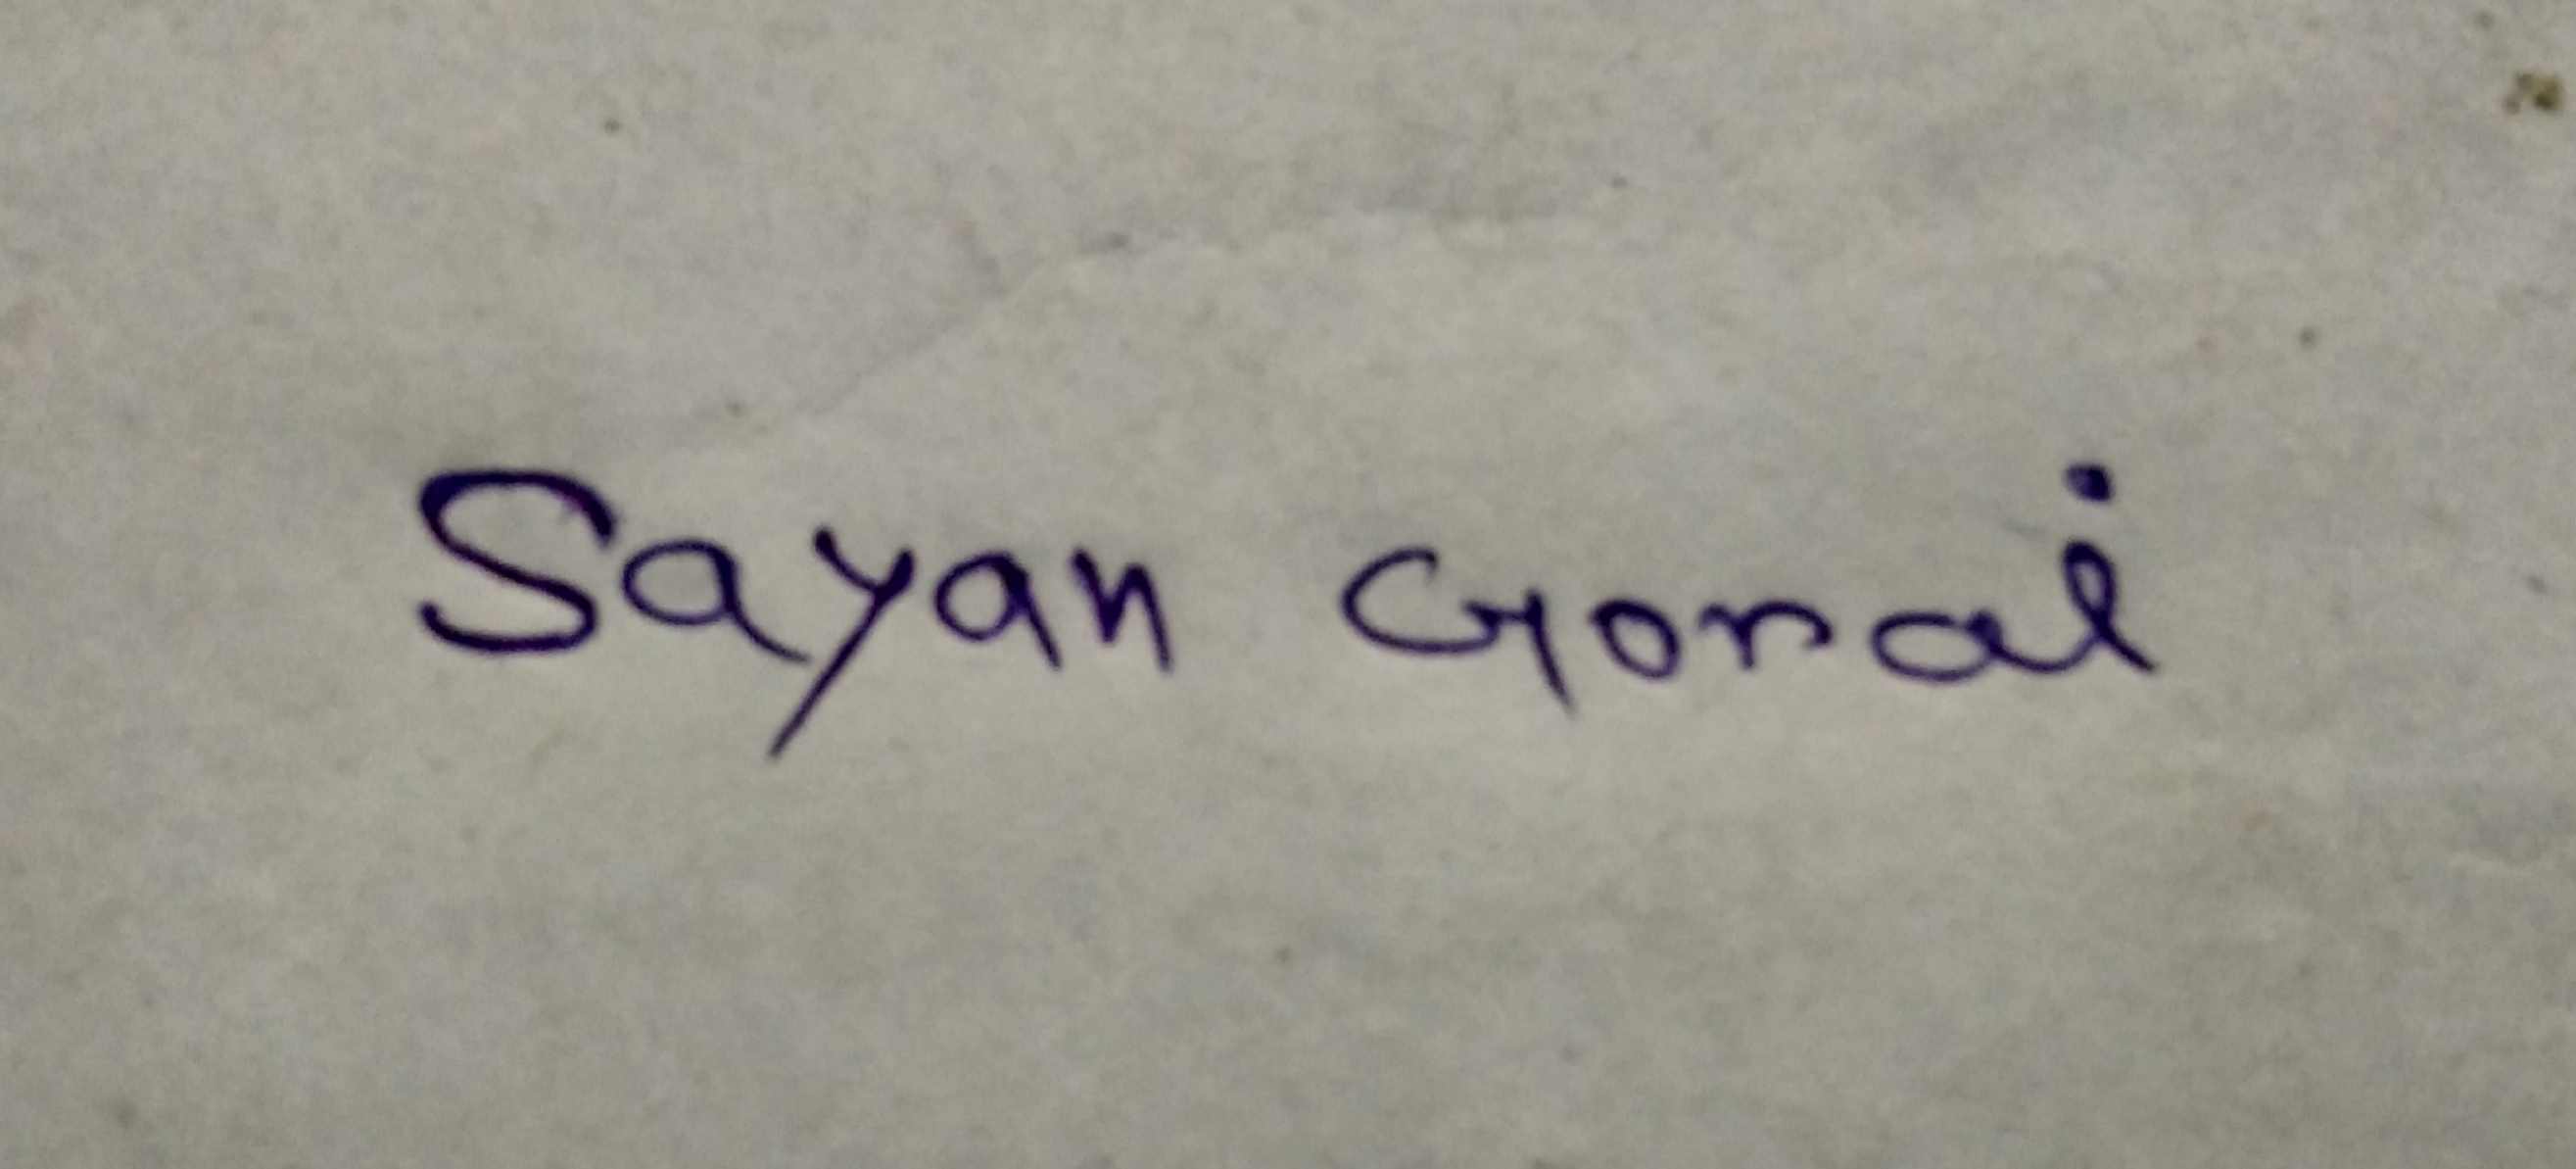 Sayan Gorai